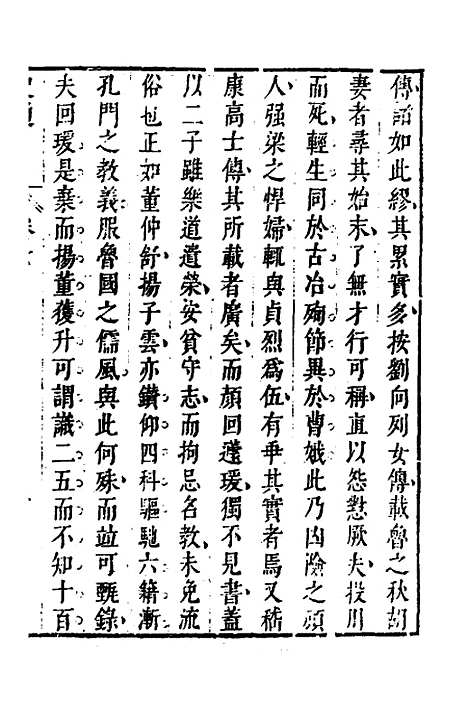 傳諸如此繆其累實多按劉向列女傳載魯之秋胡
妻者尋其始末了無才行可稱直以怨懟厥夫投川
而死輕生同於古冶殉節異於曹娥此乃凶險之頑
人强梁之悍婦輒與貞烈爲伍有乖其實者焉又嵇
康高士傳其所載者廣矣而顔回蘧瑗獨不見書蓋
以二子雖樂道遺榮安貧守志而拘忌名教未免流
俗也正如董仲舒揚子雲亦鑽仰四科驅馳六籍漸
孔門之教義服魯國之儒風與此何殊而竝可甄錄
夫回瑗是棄而揚董獲升可謂識二五而不知十百